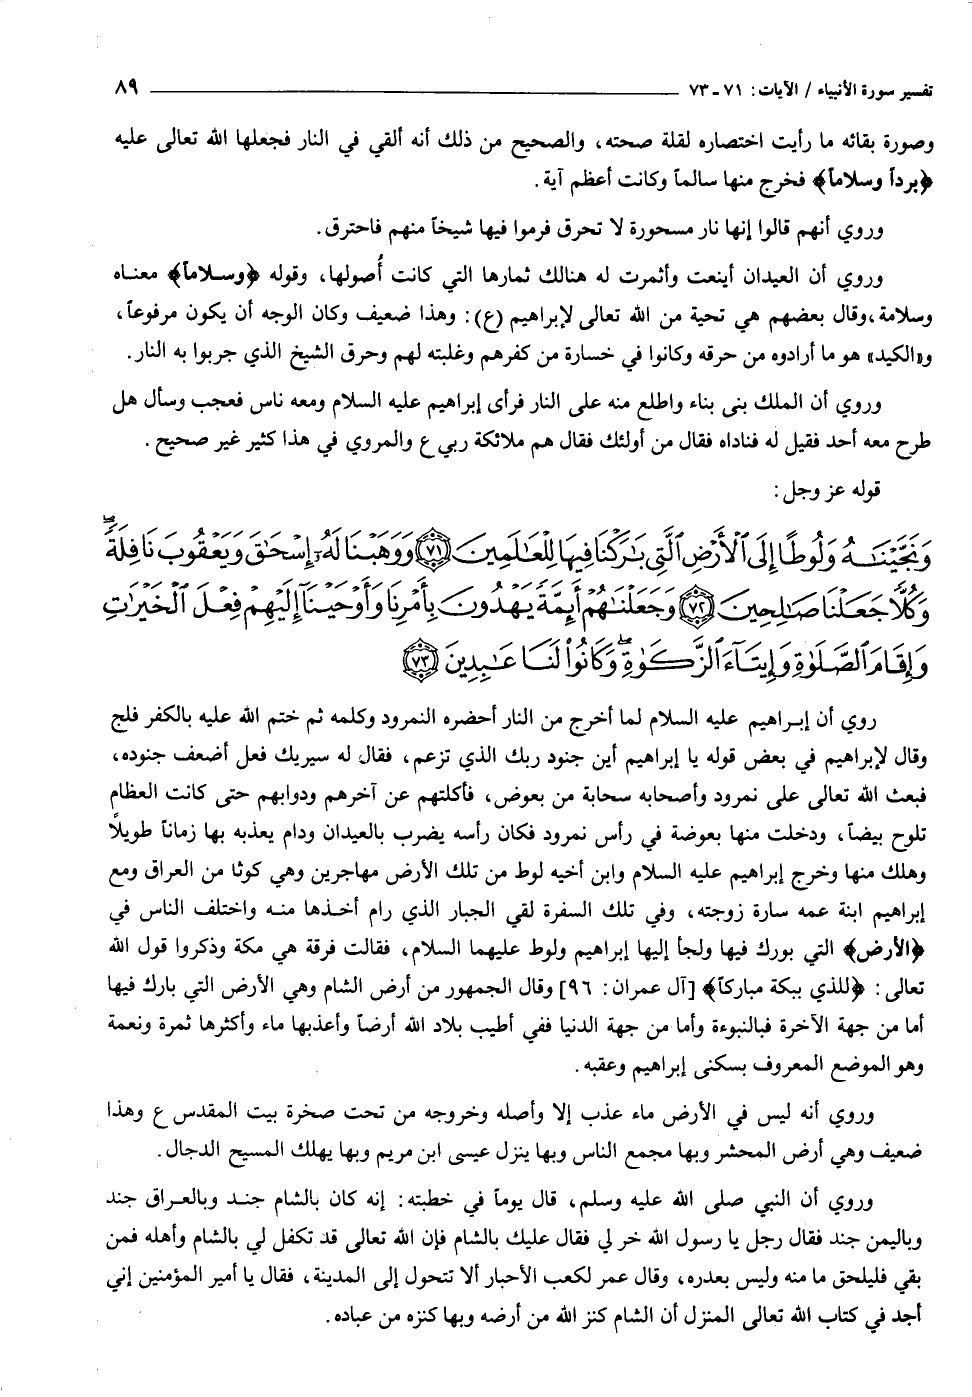 تفسير سورة الأنبياء / الآيات: ٧١ - ٧٣ ٨٩
وصورة بقائه ما رأيت اختصاره لقلة صحته، والصحيح من ذلك أنه ألقي في النار فجعلها الله تعالى عليه
﴿برداً وسلاماً﴾ فخرج منها سالماً وكانت أعظم آية.
وروي أنهم قالوا إنها نار مسحورة لا تحرق فرموا فيها شيخاً منهم فاحترق.
وروي أن العيدان أينعت وأثمرت له هنالك ثمارها التي كانت أُصولها، وقوله ﴿وسلاماً﴾ معناه
وسلامة، وقال بعضهم هي تحية من الله تعالى لإبراهيم (ع): وهذا ضعيف وكان الوجه أن يكون مرفوعاً،
و«الكيد» هو ما أرادوه من حرقه وكانوا في خسارة من كفرهم وغلبته لهم وحرق الشيخ الذي جربوا به النار.
وروي أن الملك بنى بناء واطلع منه على النار فرأى إبراهيم عليه السلام ومعه ناس فعجب وسأل هل
طرح معه أحد فقيل له فناداه فقال من أولئك فقال هم ملائكة ربي ع والمروي في هذا كثير غير صحيح.
قوله عز وجل:
وَنَجَّيْنَٰهُ وَلُوطًا إِلَى ٱلْأَرْضِ ٱلَّتِى بَٰرَكْنَا فِيهَا لِلْعَٰلَمِينَ ﴿٧١﴾ وَوَهَبْنَا لَهُۥٓ إِسْحَٰقَ وَيَعْقُوبَ نَافِلَةً ۖ
وَكُلًّا جَعَلْنَا صَٰلِحِينَ ﴿٧٢﴾ وَجَعَلْنَٰهُمْ أَئِمَّةً يَهْدُونَ بِأَمْرِنَا وَأَوْحَيْنَآ إِلَيْهِمْ فِعْلَ ٱلْخَيْرَٰتِ
وَإِقَامَ ٱلصَّلَوٰةِ وَإِيتَآءَ ٱلزَّكَوٰةِ ۖ وَكَانُوا۟ لَنَا عَٰبِدِينَ ﴿٧٣﴾
روي أن إبراهيم عليه السلام لما أخرج من النار أحضره النمرود وكلمه ثم ختم الله عليه بالكفر فلج
وقال لإبراهيم في بعض قوله يا إبراهيم أين جنود ربك الذي تزعم، فقال له سيريك فعل أضعف جنوده،
فبعث الله تعالى على نمرود وأصحابه سحابة من بعوض، فأكلتهم عن آخرهم ودوابهم حتى كانت العظام
تلوح بيضاً، ودخلت منها بعوضة في رأس نمرود فكان رأسه يضرب بالعيدان ودام يعذبه بها زماناً طويلاً
وهلك منها وخرج إبراهيم عليه السلام وابن أخيه لوط من تلك الأرض مهاجرين وهي كوثا من العراق ومع
إبراهيم ابنة عمه سارة زوجته، وفي تلك السفرة لقي الجبار الذي رام أخذها منه واختلف الناس في
﴿الأرض﴾ التي بورك فيها ولجأ إليها إبراهيم ولوط عليهما السلام، فقالت فرقة هي مكة وذكروا قول الله
تعالى: ﴿للذي ببكة مباركاً﴾ [آل عمران: ٩٦] وقال الجمهور من أرض الشام وهي الأرض التي بارك فيها
أما من جهة الآخرة فبالنبوءة وأما من جهة الدنيا ففي أطيب بلاد الله أرضاً وأعذبها ماء وأكثرها ثمرة ونعمة
وهو الموضع المعروف بسكنى إبراهيم وعقبه.
وروي أنه ليس في الأرض ماء عذب إلا وأصله وخروجه من تحت صخرة بيت المقدس ع وهذا
ضعيف وهي أرض المحشر وبها مجمع الناس وبها ينزل عيسى ابن مريم وبها يهلك المسيح الدجال.
وروي أن النبي صلى الله عليه وسلم، قال يوماً في خطبته: إنه كان بالشام جند وبالعراق جند
وباليمن جند فقال رجل يا رسول الله خر لي فقال عليك بالشام فإن الله تعالى قد تكفل لي بالشام وأهله فمن
بقي فليلحق ما منه وليس بعدره، وقال عمر لكعب الأحبار ألا تتحول إلى المدينة، فقال يا أمير المؤمنين إني
أجد في كتاب الله تعالى المنزل أن الشام كنز الله من أرضه وبها كنزه من عباده.